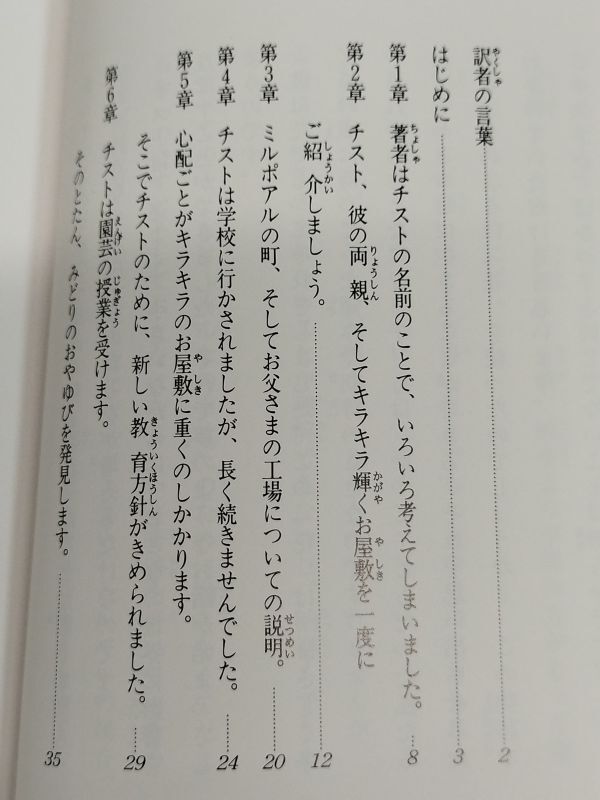 訳者の言葉 2
はじめに 3
第1章 著者はチストの名前のことで、いろいろ考えてしまいました。 8
第2章 チスト、彼の両親、そしてキラキラ輝くお屋敷を一度に
ご紹介しましょう。 12
第3章 ミルポアルの町、そしてお父さまの工場についての説明。 20
第4章 チストは学校に行かされましたが、長く続きませんでした。 24
第5章 心配ごとがキラキラのお屋敷に重くのしかかります。
そこでチストのために、新しい教育方針がきめられました。 29
第6章 チストは園芸の授業を受けます。
そのとたん、みどりのおやゆびを発見します。 35